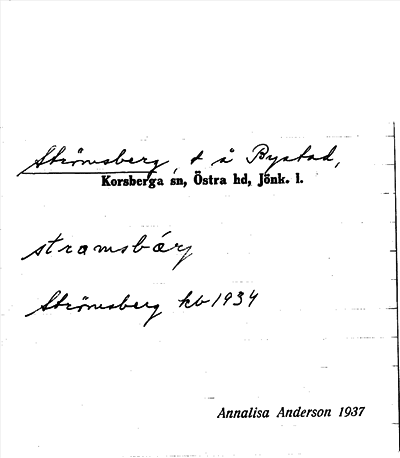 Strömsberg, t å Bystad,
Korsberga sn, Östra hd, Jönk. l.
stramsbärj
Strömsberg kb 1934
Annalisa Anderson 1937